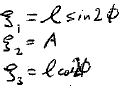 ξ₁ = l sin 2ϕ
ξ₂ = A
ξ₃ = l cos 2ϕ